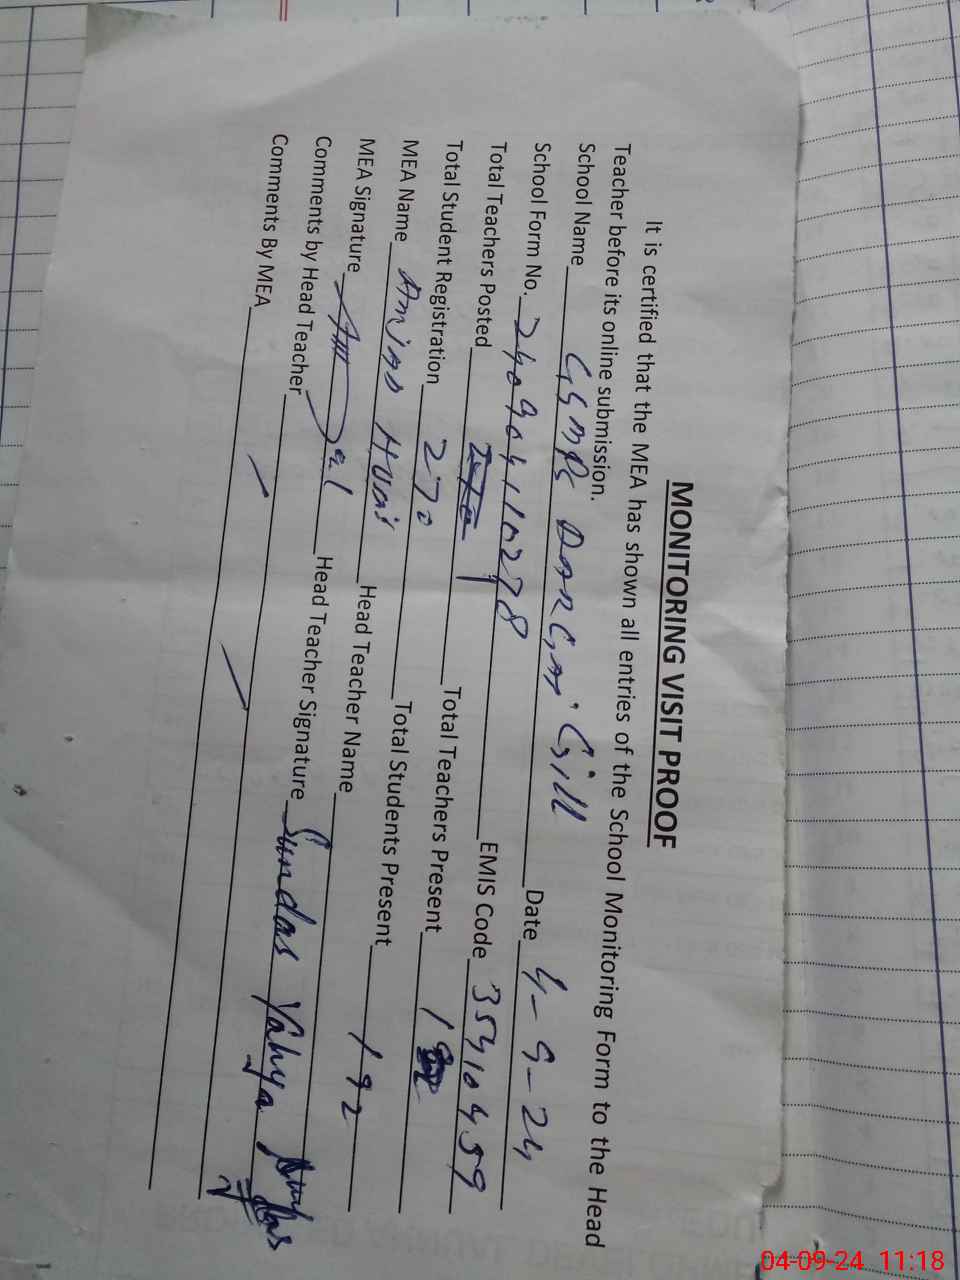 MONITORING VISIT PROOF
It is certified that the MEA has shown all entries of the School Monitoring Form to the Head
Teacher before its online submission.
School Name GGMPS Gill Date 4-9-24
School Form No. 240904110278 EMIS Code 35410459
Total Teachers Posted Total Teachers Present 1
Total Student Registration 270 Total Students Present 192
MEA Name Head Teacher Name
MEA Signature Head Teacher Signature Sundas Yahya
Comments by Head Teacher
Comments By MEA
04-09-24 11:18